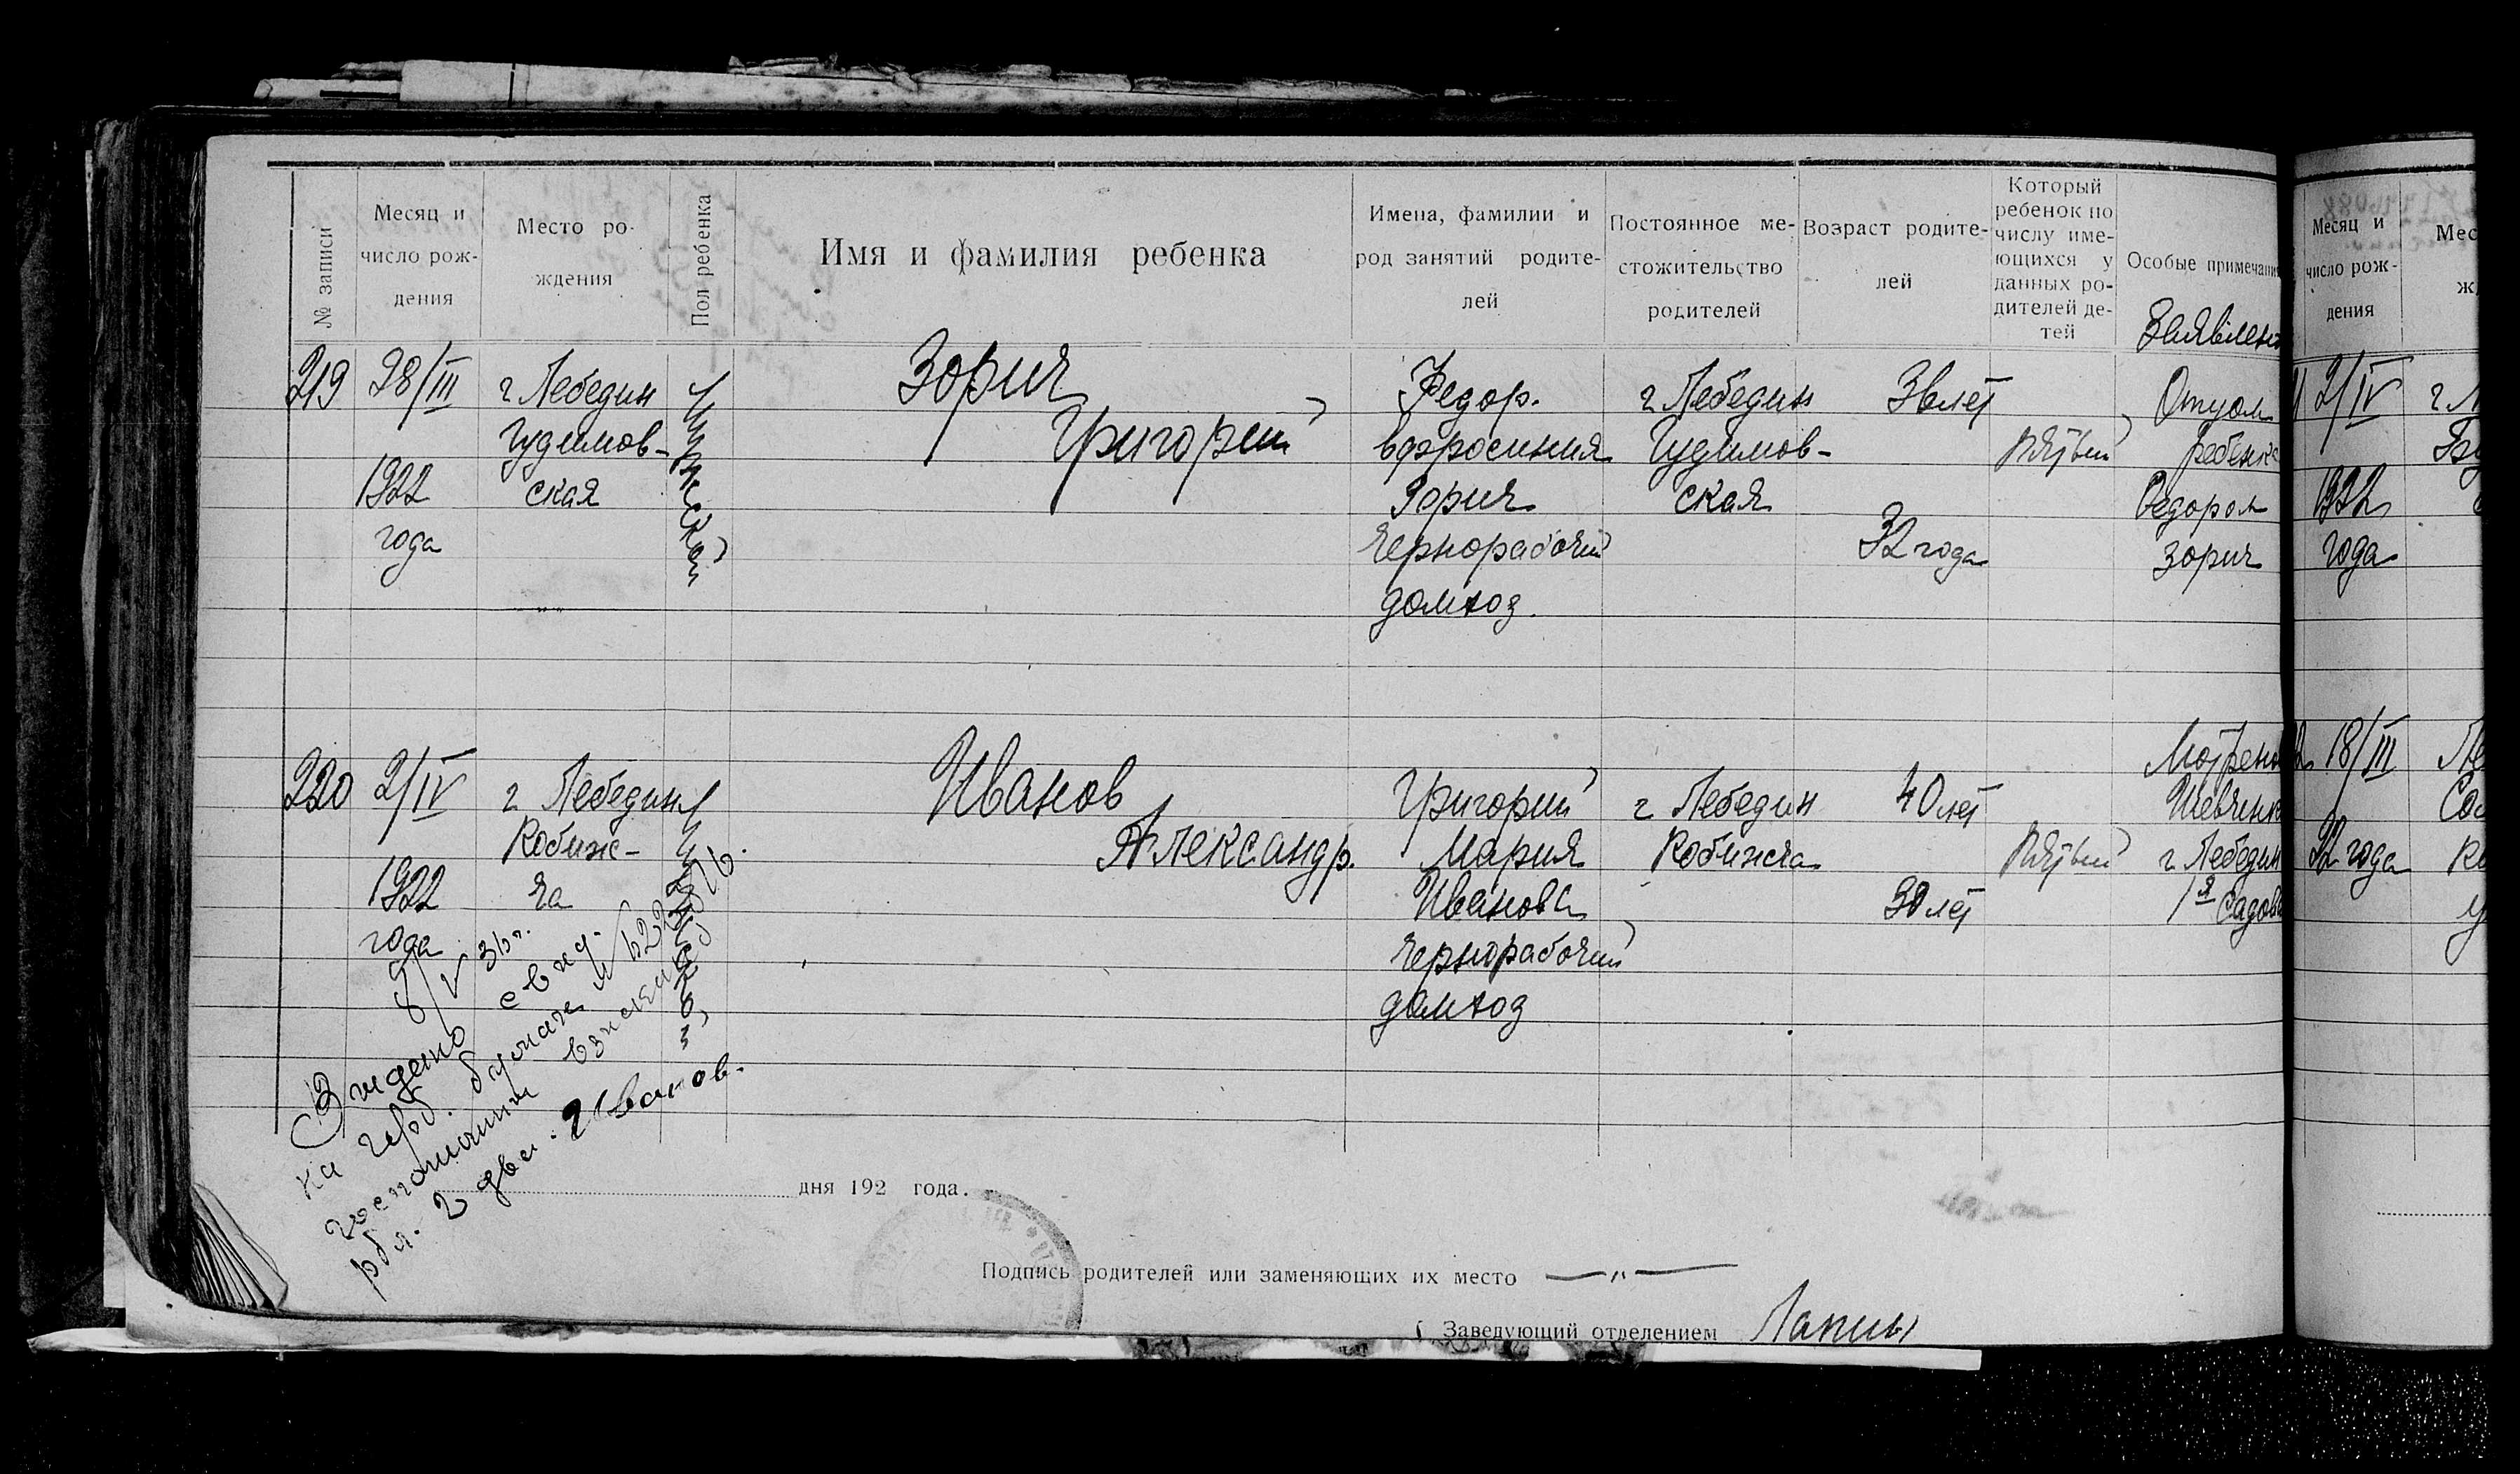 № записи
Месяц и
число рож-
дения
Место ро-
ждения
Пол ребенка
Имя и фамилия ребенка
Имена, фамилии и
род занятий родите-
лей
Постоянное ме-
стожительство
родителей
Возраст родите-
лей
Который
ребенок по
числу име-
ющихся у
данных ро-
дителей де-
тей
Особые примечани
219
28/III
1922
года
г Лебедин
Гудимов-
ская
Мужеской
Зорич
Григорий
Федор.
Зорич
Чернорабочий
домхоз.
г. Лебедин
Гудимов-
ская
32 года
Пятый
Отцом
ребенка
Федором
Зорич
220
2/IV
1922
года
г Лебедин
Кобиж-
ча
Иванов
Александр.
Григорий
Мария
Иванова
Чернорабочий
домхоз
г. Лебедин
Кобижча
40 лет
30 лет
Пятый
Шевченк
г. Лебедин
1я Садов
на герб. бумаге
Иванов.
дня 192 года.
Подпись родителей или заменяющих их место
Заведующий отделением
Месяц и
число рож-
дения
Мес
ж
2/IV
1922
года
18/III
22 года